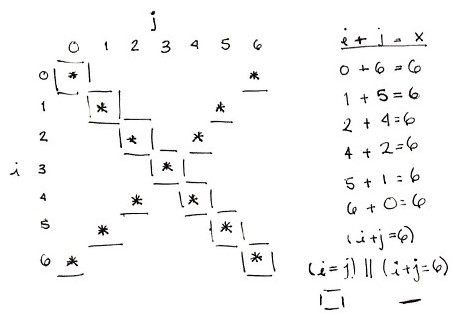 j
0 1 2 3 4 5 6
0 * *
1 * *
2 * *
i 3 *
4 * *
5 * *
6 * *
i + j = x
0 + 6 = 6
1 + 5 = 6
2 + 4 = 6
4 + 2 = 6
5 + 1 = 6
6 + 0 = 6
(i+j=6)
(i=j) || (i+j=6)